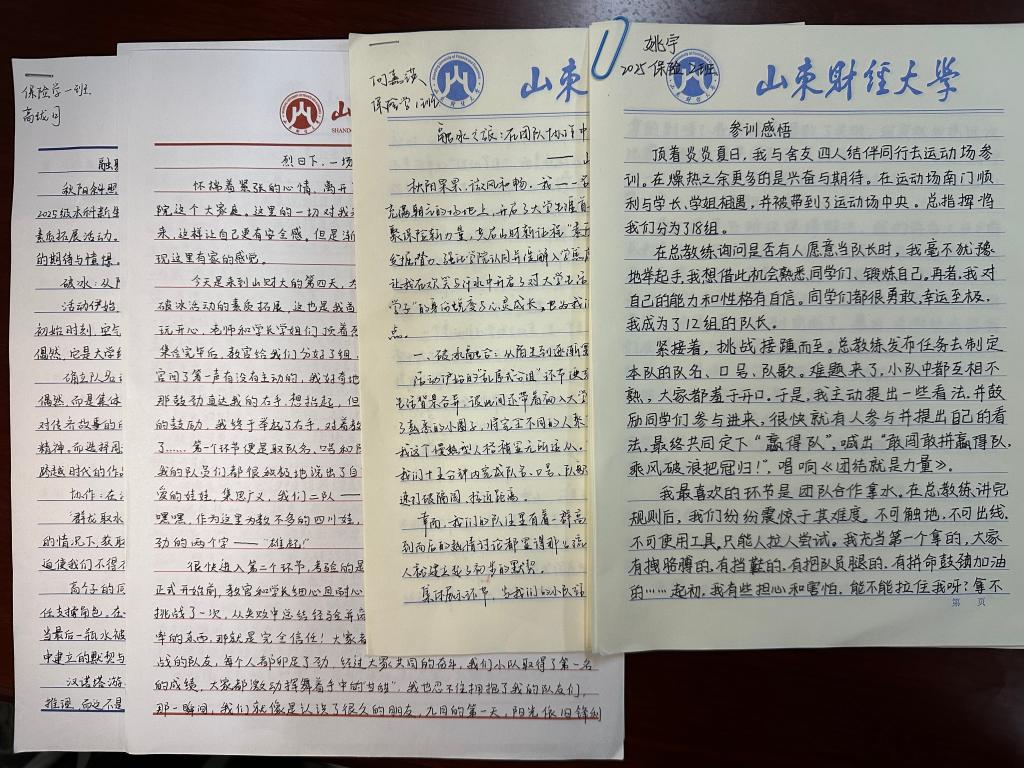 保险学一班
高珑月
秋阳斜照
2025级本科新生
素质拓展活动。
的期待与憧憬。
破冰：从
活动伊始
初始时刻，空气
偶然，它是大学
确立队名
偶然，而是集体
对传奇故事的
精神，而选择周
跨越时代的作
协作：在
群龙取水
的情况下，获取
迫使我们不得不
高个子的同
任支撑角色。在
当最后一瓶水被
中建立的默契与
汉诺塔游
推理，而这不是
山
SHAND
烈日下，一场
怀揣着紧张的心情，离开
院这个大家庭。这里的一切对我
来，这样让自己更有安全感。但是渐
现这里有家的感觉。
今天是来到山财大的第四天，大
破冰活动的素质拓展，这也是我首
玩开心，老师和学长学姐们顶着烈
集合完毕后，教官给我们分好了组，
官问了第一声有没有主动的，我好奇地
那鼓劲直达我的右手，想抬起，但
的鼓励，我终于举起了右手，对着教
了……第一个环节便是取队名、口号和队
我的队员们都很积极地说出了自
爱的娃娃，集思广义，我们二队——
嘿嘿，作为这里为数不多的四川娃，
劲的两个字——“雄起！”
很快进入第二个环节，考验的是
正式开始前，教官和学长细心且耐心
挑战了一次，从失败中总结经验并
牢的东西，那就是完全信任！大家看
战的队友，每个人都卯足了劲，经过大家共同的奋斗，我们小队取得了第一名
的成绩，大家都激动挥舞着手中的“甘蔗”，我也忍不住拥抱了我的队友们，
那一瞬间，我们就像是认识了很久的朋友，九月的第一天，阳光依旧锋利
何嘉滢
保险学1班
山东
融冰之旅：在团队协作中
——山
秋阳杲杲，微风和畅，我——一名
充满朝气的场地上，开启了大学生涯首
聚保险新力量，共启山财新征程“素
让我在欢笑与汗水中开启了对大学生活
学子”的身份蜕变与心灵成长，也为我
点。
一、破冰融合：从陌生到逐渐熟
活动伊始的“乱序式分组”环节
生活背景各异，彼此间还带着初入大学
了熟悉的小圈子，将完全不同的人聚
我这个慢热型人格稍显无所适从。
我们十五分钟内完成队名、口号、队歌
速打破隔阂，拉近距离。
幸而，我们的队伍里有着一群高
到而后的热情讨论都显得那么
人都建立起了初步的默契。
集体展示环节，当我们的小队
姚宇
2025保险2班
山东财经大学
参训感悟
顶着炎炎夏日，我与舍友四人结伴同行去运动场参
训。在燥热之余更多的是兴奋与期待。在运动场南门顺
利与学长、学姐相遇，并被带到了运动场中央。总指挥将
我们分为了18组。
在总教练询问是否有人愿意当队长时，我毫不犹豫
地举起手，我想借此机会熟悉同学们、锻炼自己，再者，我对
自己的能力和性格有自信。同学们都很勇敢，幸运至极，
我成为了12组的队长。
紧接着，挑战接踵而至。总教练发布任务去制定
本队的队名、口号、队歌。难题来了，小队中都互相不
熟，大家都羞于开口，于是，我主动提出一些看法，并鼓
励同学们参与进来，很快就有人参与并提出自己的看
法，最终共同定下“赢得队”，喊出“敢闯敢拼赢得队，
乘风破浪把冠归！”，唱响《团结就是力量》。
我最喜欢的环节是团队合作拿水。在总教练讲完
规则后，我们纷纷震惊于其难度。不可触地，不可出线，
不可使用工具，只能人拉人尝试。我充当第一个拿的，大家
有拽胳膊的，有挡鞋的，有把队员腿的，有拼命鼓劲加油
的……起初，我有些担心和害怕，能不能拉住我呀？拿不
第 页